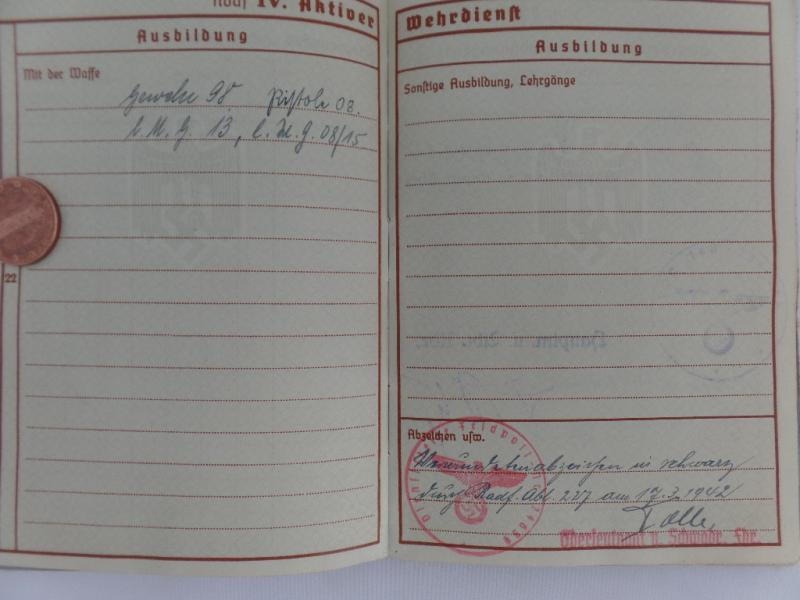 noch IV. Aktiver Wehrdienst
Ausbildung
Mit der Waffe
Gewehr 98 Pistole 08.
l. M. G. 13, l. M. G. 08/15
22
Ausbildung
Sonstige Ausbildung, Lehrgänge
Hauptm. u.
Abzeichen usw.
Verwundetenabzeichen in schwarz
durch Radf. Abt. 227 am 17.3.1942
Oberleutnant u. Schwadr. Fhr.
Dienststelle Feldpost